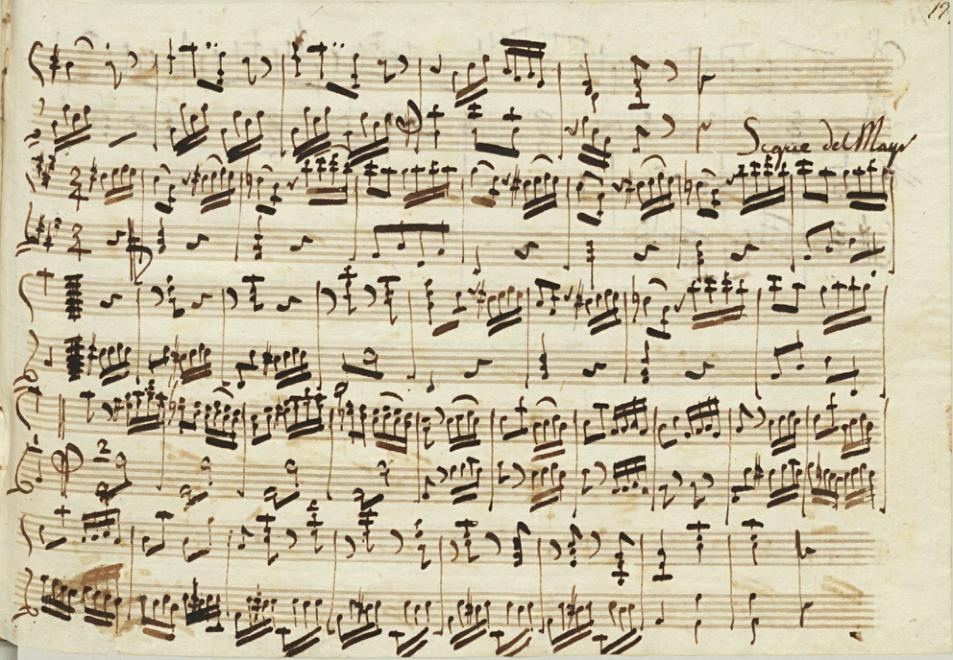 19.
Segue del Mayr
2
4
2
4
2